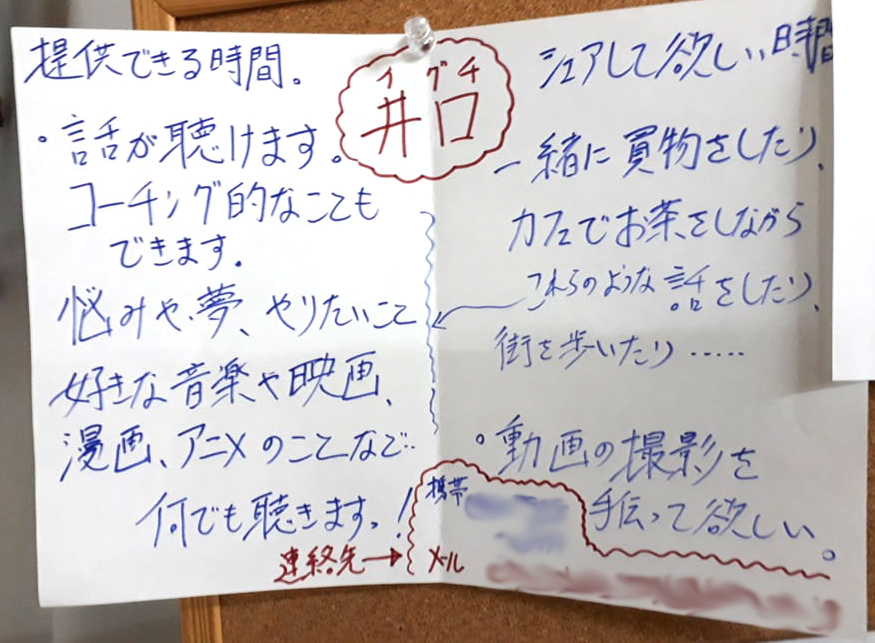 イグチ
井口
提供できる時間。
・話が聴けます。
コーチング的なことも
できます。
悩みや、夢、やりたいこと
好きな音楽や映画、
漫画、アニメのことなど…
何でも聴きます。!
連絡先→
シェアして欲しい時間
一緒に買物をしたり、
カフェでお茶をしながら
これらのような話をしたり、
街を歩いたり……
。動画の撮影を
手伝って欲しい。
携帯
メール